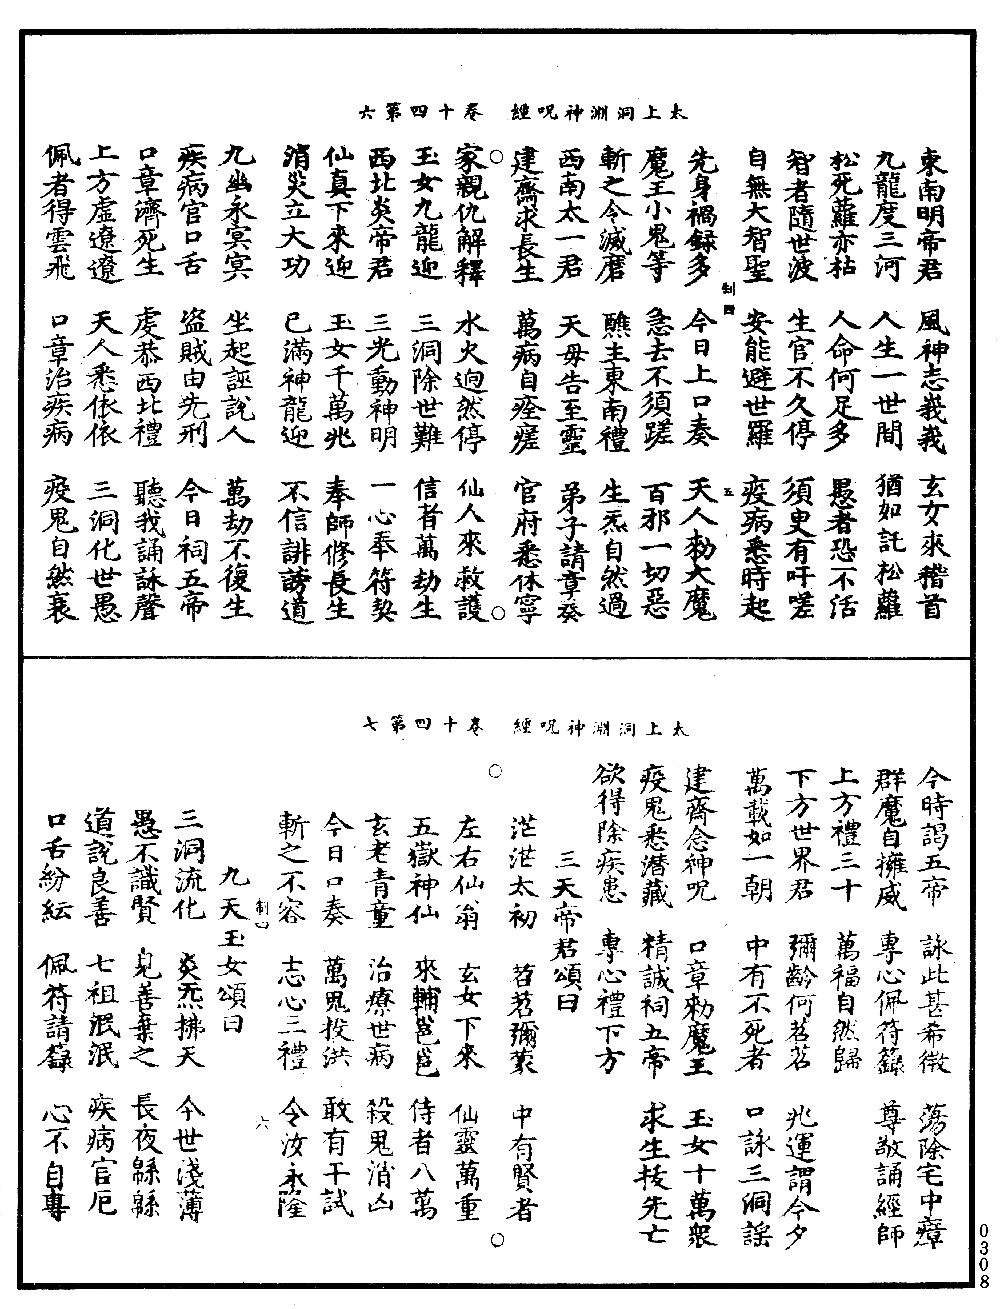 太上洞淵神呪經　卷十四第六
東南明帝君　風神志峩峩　玄女來稽首
九龍度三河　人生一世間　猶如託松蘿
松死蘿亦枯　人命何足多　愚者恐不活
智者隨世波　生官不久停　須臾有吁嗟
自無大智聖　安能避世羅　疫病悉時起
制四　五
先身禍録多　今日上口奏　天人勑大魔
魔王小鬼等　急去不須蹉　百邪一切惡
斬之令滅磨　醮主東南禮　生炁自然過
西南太一君　天毋告至靈　弟子請章癸
建齋求長生　萬病自痊瘥　官府悉休寧
家親仇解釋　水火逈然停　仙人來救護
玉女九龍迎　三洞除世難　信者萬劫生
西北炎帝君　三光動神明　一心奉符契
仙真下來迎　玉女千萬兆　奉師修長生
消災立大功　已滿神龍迎　不信誹謗道
九幽永冥冥　坐起誣說人　萬劫不復生
疾病官口舌　盜賊由先刑　今日祠五帝
口章濟死生　虔恭西北禮　聽我誦詠聲
上方虛遼遼　天人悉依依　三洞化世愚
佩者得雲飛　口章治疾病　疫鬼自然衰
太上洞淵神呪經　卷十四第七
今時謁五帝　詠此甚希微　蕩除宅中瘴
群魔自擁威　專心佩符籙　尊敬誦經師
上方禮三十　萬福自然歸
下方世界君　彌齡何苕苕　兆運謂今夕
萬載如一朝　中有不死者　口詠三洞謡
建齋念神呪　口章勑魔王　玉女十萬衆
疫鬼悉潛藏　精誠祠五帝　求生拔先亡
欲得除疾患　專心禮下方
三天帝君頌曰
茫茫太初　苕苕彌蒙　中有賢者
左右仙翁　玄女下來　仙靈萬重
五嶽神仙　來輔邕邕　侍者八萬
玄老青童　治療世病　殺鬼消凶
今日口奏　萬鬼投洪　敢有干試
斬之不容　志心三禮　令汝永隆
制四　六
九天玉女頌曰
三洞流化　炎炁拂天　今世淺薄
愚不識賢　見善棄之　長夜緜緜
道說良善　七祖泯泯　疾病官厄
口舌紛紜　佩符請籙　心不自專
0308